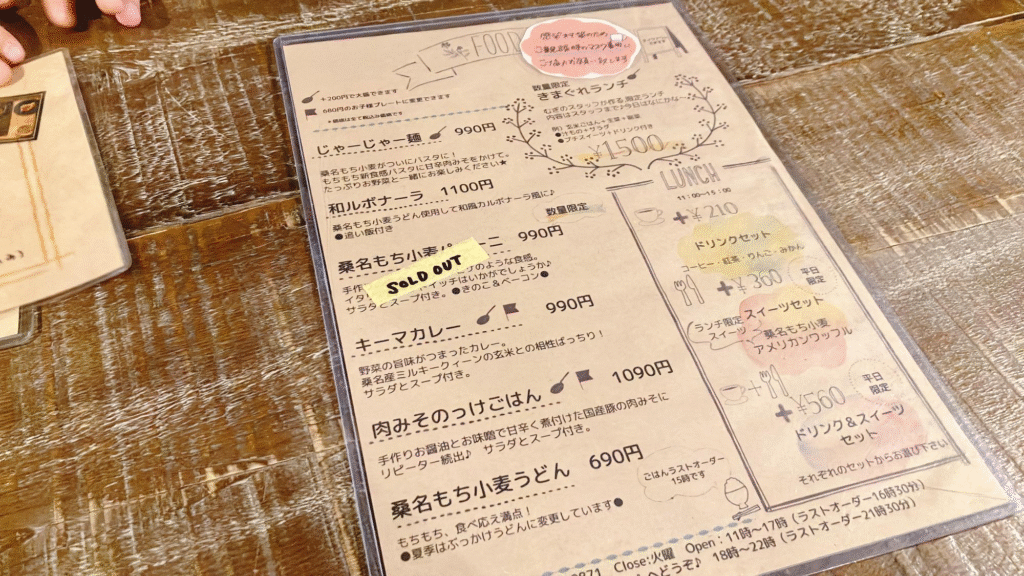 FOOD
+200円で大盛できます
680円のお子様プレートに変更できます
じゃーじゃー麺 990円
桑名もち小麦がついにパスタに!
もちもち新食感パスタに甘辛肉みそをかけて。
たっぷりお野菜と一緒にお楽しみください★
和ルボナーラ 1100円
桑名もち小麦うどん使用して和風カルボナーラ風に♪
●追い飯付き
数量限定
桑名もち小麦パ ニ 990円
SOLD OUT
手作 のような食感。
イタ イッチはいかがでしょうか♪
サラダとスープ付き。●きのこ&ベーコン●
キーマカレー 990円
野菜の旨味がつまったカレー。
桑名産ミルキークィーンの玄米との相性ばっちり!
サラダとスープ付き。
肉みそのっけごはん 1090円
手作りお醤油とお味噌で甘辛く煮付けた国産豚の肉みそに
リピーター続出♪ サラダとスープ付き。
桑名もち小麦うどん 690円
もちもち、食べ応え満点!
●夏季はぶっかけうどんに変更しています●
ごはんラストオーダー
15時です
数量限定
きまぐれランチ
むぎのスタッフが作る限定ランチ
内容はスタッフまで今日はなにかな~
例)玄米ごはん+主菜+副菜
+汁もの+サラダ
●プチスイーツドリンク付き
¥1500
LUNCH
11:00~15:00
+¥210
ドリンクセット
コーヒー・紅茶・りんご・みかん
+¥360
平日
限定
スイーツセット
ランチ限定
スイーツ
桑名もち小麦
アメリカンワッフル
+
+¥560
平日
限定
ドリンク&スイーツ
セット
それぞれのセットからお選び下さい
0871 Close:火曜 Open:11時~17時(ラストオーダー16時30分)
へどうぞ♪ 18時~22時(ラストオーダー21時30分)